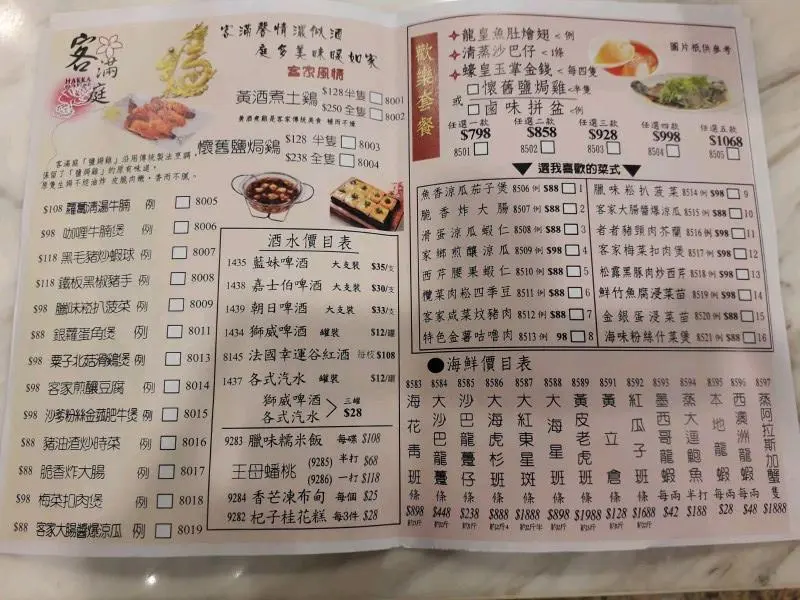 客滿庭
HAKKA
客滿馨情濃似酒
庭多美味暖如家
客家風情
黃酒煮土鷄 $128半隻 8001
$250全隻 8002
黃酒煮鷄是客家傳統美食 補而不燥
懷舊鹽焗鷄 $128 半隻 8003
$238 全隻 8004
客滿庭「鹽焗鷄」沿用傳統製法烹調，
保留了「鹽焗鷄」的原有味道。
$108 蘿蔔清湯牛腩 例 8005
$98 咖喱牛腩煲 例 8006
$118 黑毛豬炒蝦球 例 8007
$118 鐵板黑椒豬手 例 8008
$98 臘味崧扒菠菜 例 8009
$88 銀蘿蛋角煲 例 8011
$98 粟子北菇滑鷄煲 例 8013
$98 客家煎釀豆腐 例 8014
$98 沙爹粉絲金菇肥牛煲 例 8015
$88 豬油渣炒時菜 例 8016
$88 脆香炸大腸 例 8017
$98 梅菜扣肉煲 例 8018
$88 客家大腸醬爆涼瓜 例 8019
酒水價目表
1435 藍妹啤酒 大支裝 $35/支
1438 嘉士伯啤酒 大支裝 $30/支
1439 朝日啤酒 大支裝 $33/支
1434 獅威啤酒 罐裝 $12/罐
8145 法國幸運谷紅酒 每枝$108
1437 各式汽水 罐裝 $12/罐
獅威啤酒
各式汽水 > 三罐 $28
9283 臘味糯米飯 每碟 $108
王母蟠桃 (9285) 半打 $68
(9286) 一打 $118
9284 香芒凍布甸 每個 $25
9282 杞子桂花糕 每3件 $28
歡樂套餐
龍皇魚肚燴翅<例
清蒸沙巴仔<1條
蠔皇玉掌金錢<每四隻
懷舊鹽焗雞<半隻
或 鹵味拼盆<例
圖片祇供參考
任選一款 任選二款 任選三款 任選四款 任選五款
$798 $858 $928 $998 $1068
8501 8502 8503 8504 8505
選我喜歡的菜式
魚香涼瓜茄子煲 8506 例 $88 1
脆香炸大腸 8507 例 $88 2
滑蛋涼瓜蝦仁 8508 例 $88 3
家鄉煎釀涼瓜 8509 例 $98 4
西芹腰果蝦仁 8510 例 $88 5
欖菜肉崧四季豆 8511 例 $88 6
客家咸菜炆豬肉 8512 例 $88 7
特色金薯咕嚕肉 8513 例 98 8
臘味崧扒菠菜 8514 例 $98 9
客家大腸醬爆涼瓜 8515 例 $88 10
者者豬頸肉芥蘭 8516 例 $98 11
客家梅菜扣肉煲 8517 例 $98 12
松露黑豚肉炒西芹 8518 例 $98 13
鮮竹魚腐浸菜苗 8519 例 $98 14
金銀蛋浸菜苗 8520 例 $88 15
海味粉絲什菜煲 8521 例 $88 16
海鮮價目表
8583 海花青班 條 $898
8584 大沙巴龍躉 條 $448
8585 沙巴龍躉仔 條 $238
8586 大海虎杉班 條 $888
8587 大紅東星班 條 $1888
8588 大海星班 條 $898
8589 黃皮老虎班 條 $1988
8591 黃立倉 條 $128
8592 紅瓜子班 條 $1188
8593 墨西哥龍蝦 每兩 $42
8594 蒸大連鮑魚 半打 $188
8595 本地龍蝦 每兩 $28
8596 西澳洲龍蝦 每兩 $48
8597 蒸阿拉斯加蟹 隻 $1888